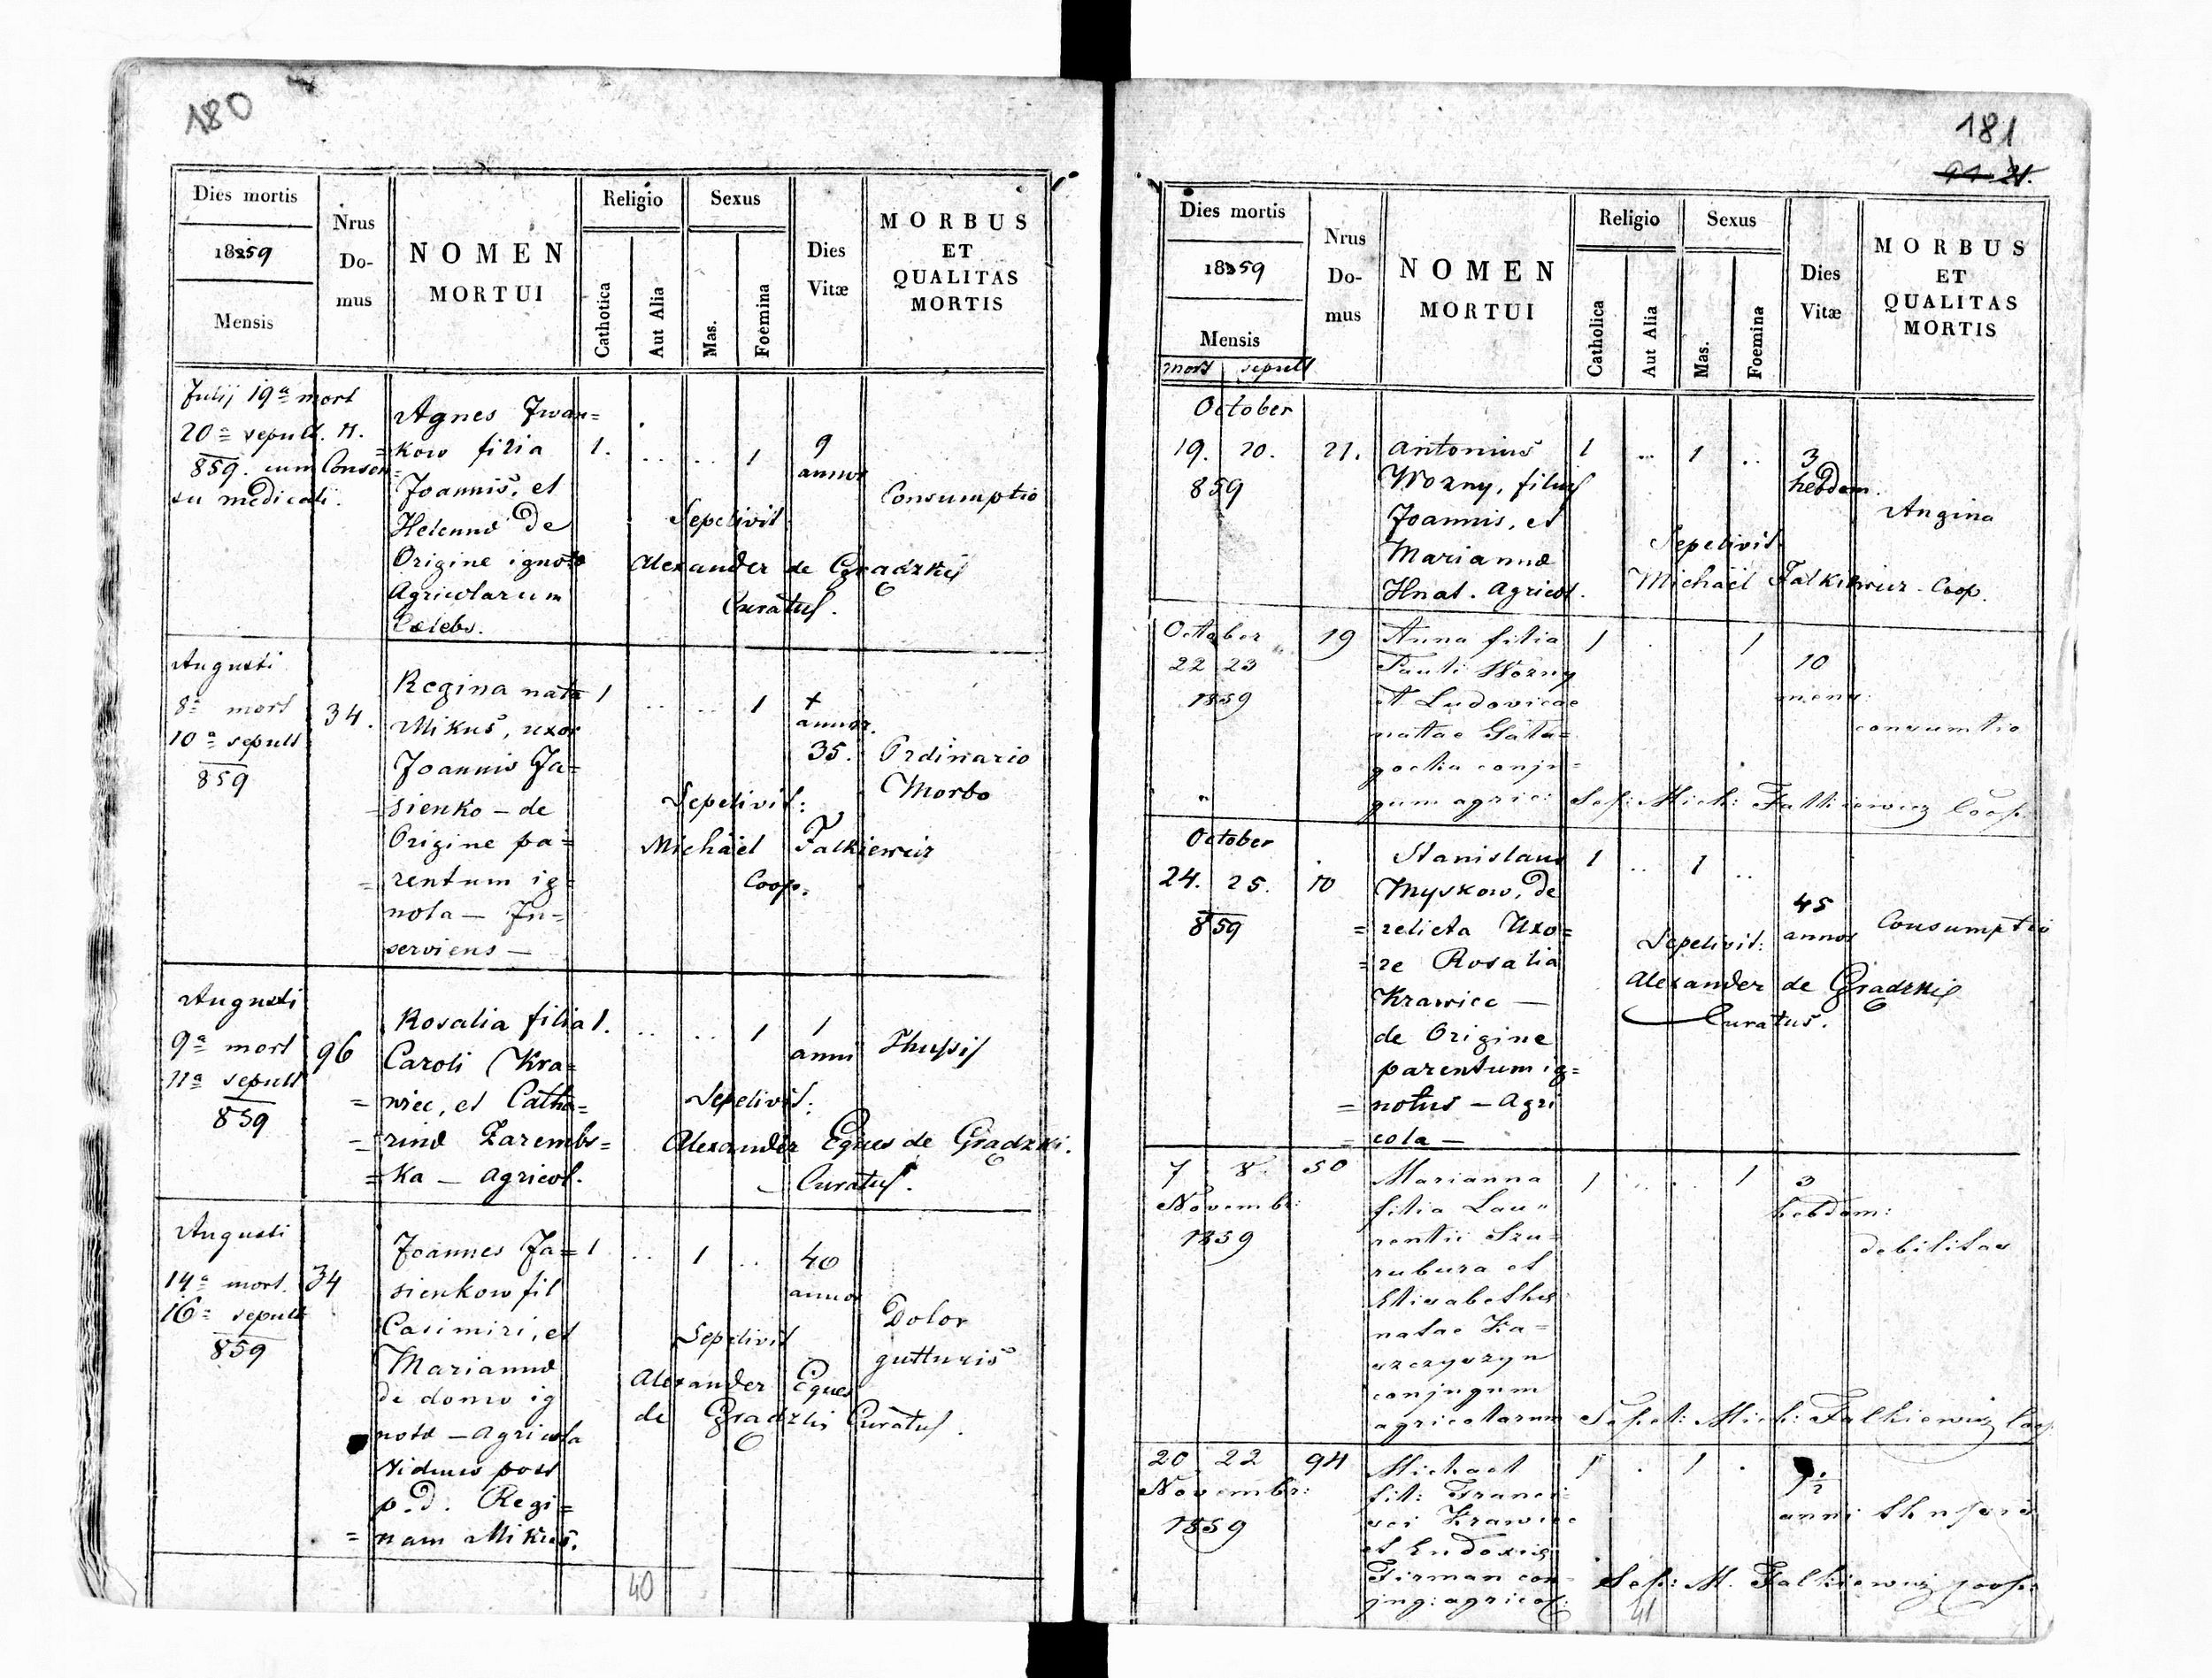 180
Dies mortis
1859
Mensis
Nrus
Do-
mus
NOMEN
MORTUI
Religio
Cathotica
Aut Alia
Sexus
Mas.
Foemina
Dies
Vitæ
MORBUS
ET
QUALITAS
MORTIS
Julij 19a mort
20a sepult. 11.
859. cum Consen=
su medicali.
Agnes Iwan=
=kow filia
Joannis, et
Helennæ de
Origine ignota
Agricolarum
Cælebs.
1. .. .. 1
9
annor
Consumptio
Sepelivit
Alexander de Gradzki
Curatus.
Augusti
8a mort
10a sepult
859
34.
Regina nata
Mikus, uxor
Joannis Ja=
=sienko – de
Origine pa=
=rentum ig=
nota – In=
serviens –
1 .. .. 1
+
annor.
35.
Ordinario
Morbo
Sepelivit:
Michäel Falkiewicz
Coop.
Augusti
9a mort
11a sepult
859
96
Rosalia filia
Caroli Kra=
=wiec, et Catha=
=rinæ Zarembs=
=ka – Agricol.
1. .. .. 1
1
anni
Thussis
Sepelivit:
Alexander Eques de Gradzki.
Curatus.
Augusti
14a mort.
16a sepult
859
34
Joannes Ja=
sienkow fil
Casimiri, et
Mariannæ
de domo ig
nota – Agricola
Viduus post
p.d. Regi=
=nam Mikus.
1 .. 1 ..
40
annor
Dolor
gutturis
Sepelivit
Alexander Eques
de Gradzki Curatus.
40
181
Dies mortis
1859
Mensis
mort sepult
Nrus
Do-
mus
NOMEN
MORTUI
Religio
Catholica
Aut Alia
Sexus
Mas.
Foemina
Dies
Vitæ
MORBUS
ET
QUALITAS
MORTIS
October
19. 20.
859
21.
Antonius
Wozny, filius
Joannis, et
Mariannæ
Hnat. Agricol.
1 .. 1 ..
3
hebdom.
Angina
Sepelivit
Michäel Falkiewicz Coop.
October
22 23
1859
19
Anna filia
Pauli Wozny
et Ludovicae
nattae Gata=
goctia conju=
gum agric:
1 . . 1
10
mens:
consumtio
Sep: Mich: Falkiewicz Coop
October
24. 25.
859
10
Stanislaus
Myskow, de
=relicta Uxo=
=re Rosalia
Krawiec –
de Origine
parentum ig=
=notus – Agri
=cola –
1 .. 1 ..
45
annor
Consumptio
Sepelivit:
Alexander de Gradzki
Curatus.
7 8
Novembr:
1859
50
Marianna
filia Lau"
rentii Szu=
rubura et
Elisabethæ
natae Ka=
szczyszyn
conjugum
agricolarum
1 .. . 1
3
hebdom:
debilitas
Sepel: Mich: Falkiewicz Coop
20 22
Novembr:
1859
94
Michael
fil: Franci=
sci Krawiec
et Eudoxiæ
Firman con=
jug: agricol:
1 . 1 .
1/2
anni
thussis
Sep: M. Falkiewicz coop:
41